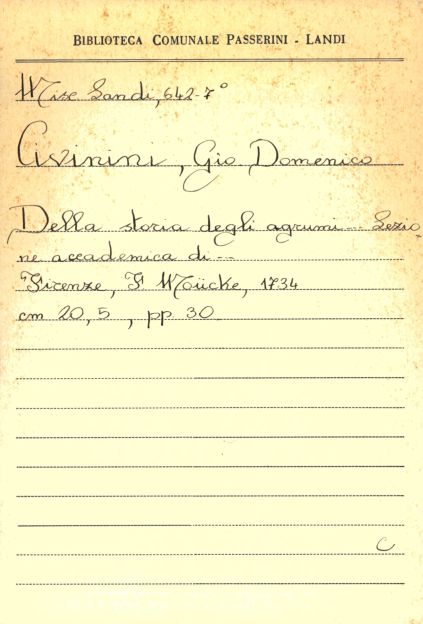 BIBLIOTECA COMUNALE PASSERINI - LANDI
Misc Landi, 642-7°
Civinini, Gio Domenico
Della storia degli agrumi... Lezio
ne accademica di...
Firenze, F Moücke, 1734
cm 20,5, pp 30
C